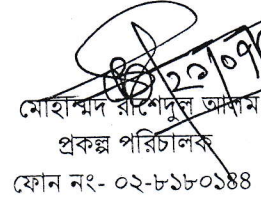 ২১/০৭/
মোহাম্মদ রাশেদুল আলম
প্রকল্প পরিচালক
ফোন নং- ০২-৮১৮০১৪৪